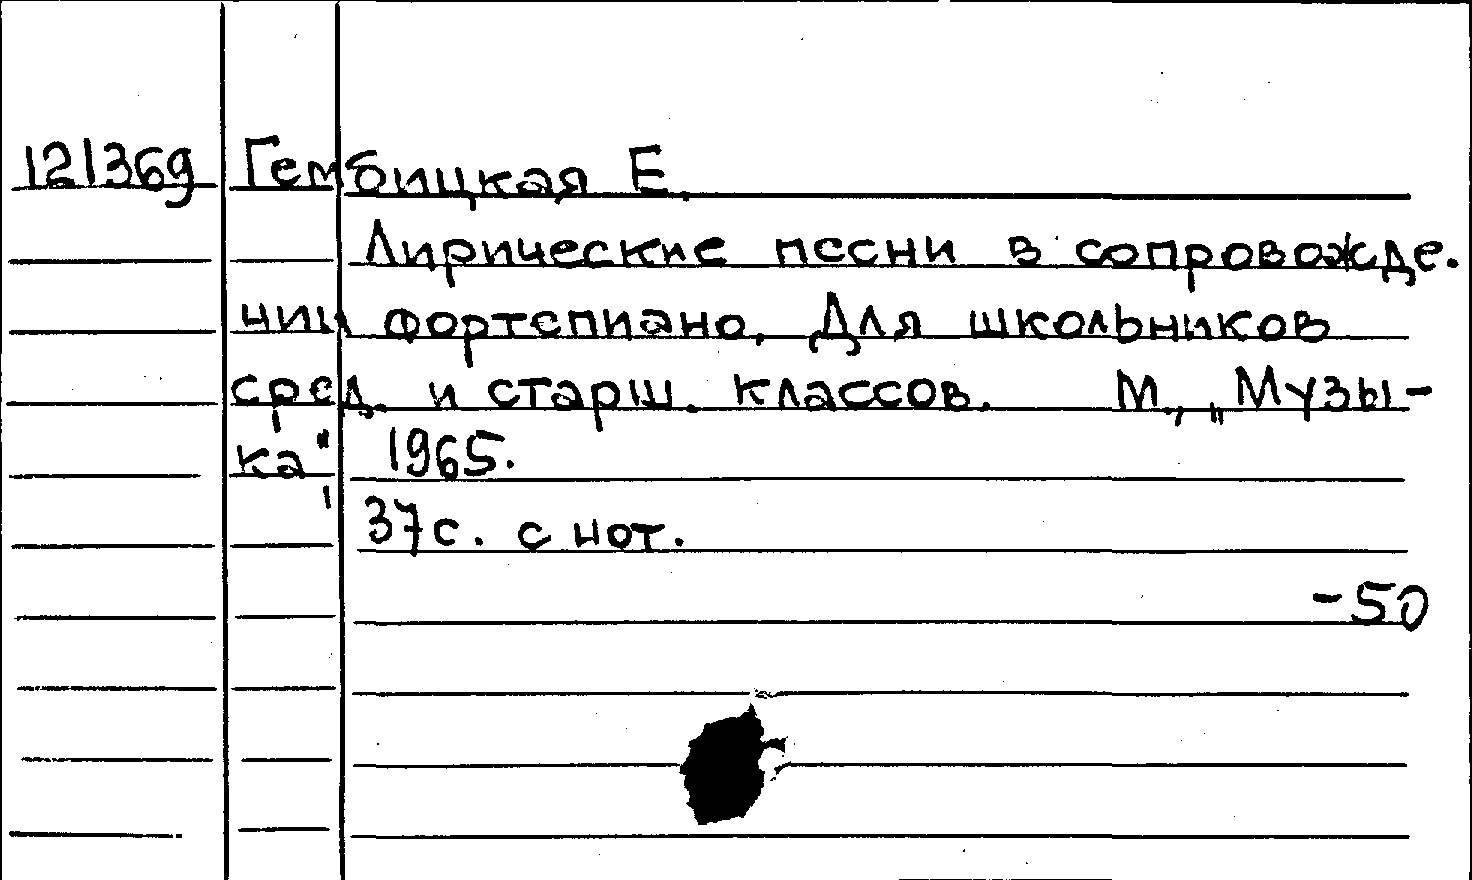 121369 Гембицкая Е.
Лирические песни в сопровожде.
нии фортепиано. Для школьников
сред. и старш. классов. М., „Музы-
ка", 1965.
37с. с нот.
-50